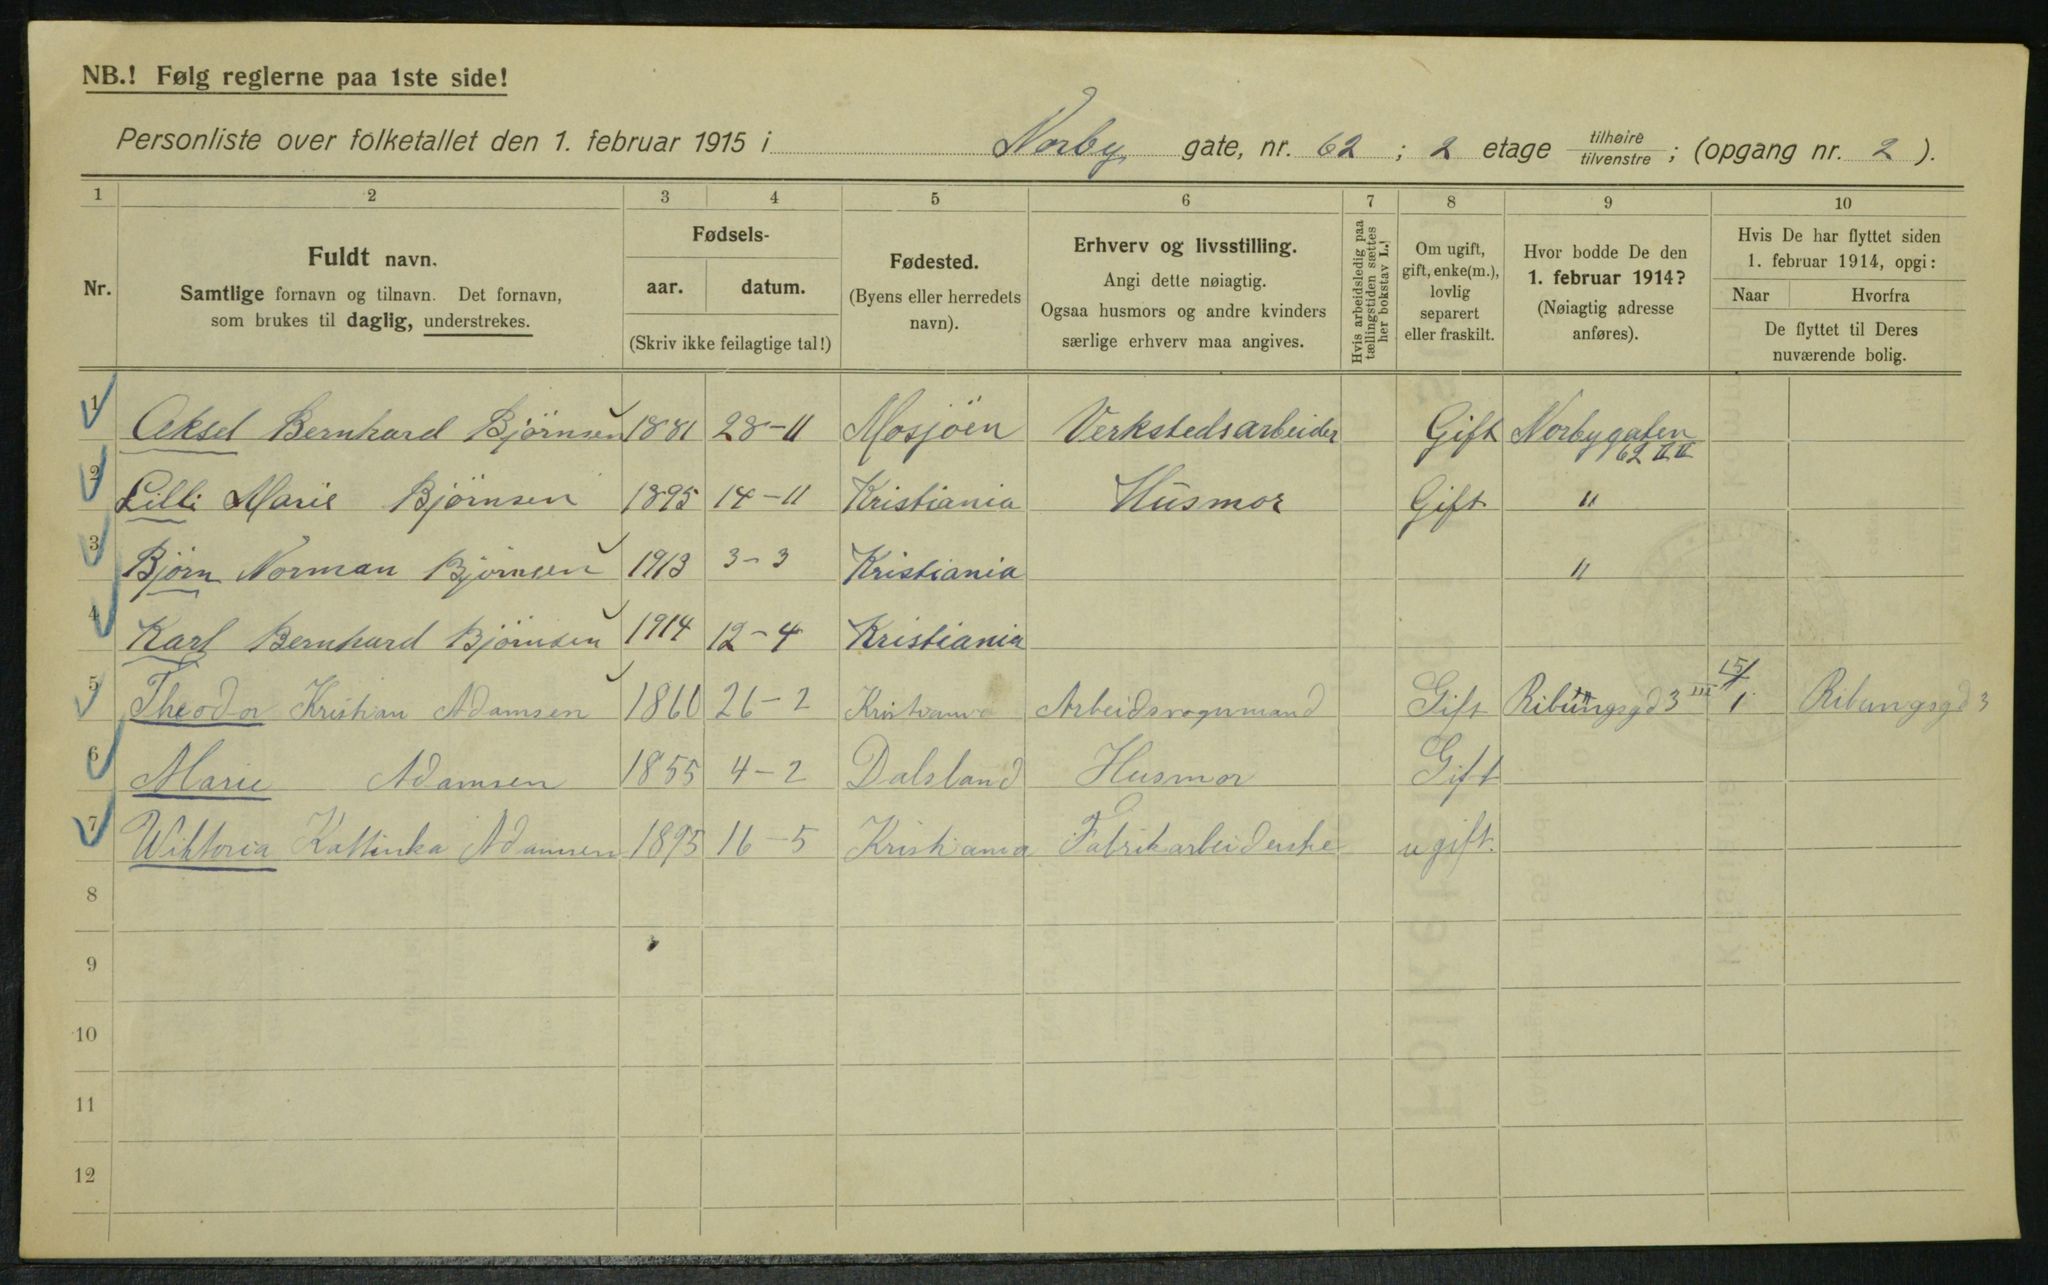 NB.! Følg reglerne paa 1ste side!
Personliste over folketallet den 1. februar 1915 i Norby gate, nr. 62 ; 2 etage tilhøire / tilvenstre ; (opgang nr. 2 ).
1 2 3 4 5 6 7 8 9 10
Nr.
Fuldt navn.
Samtlige fornavn og tilnavn. Det fornavn,
som brukes til daglig, understrekes.
Fødsels-
aar. datum.
(Skriv ikke feilagtige tal!)
Fødested.
(Byens eller herredets
navn).
Erhverv og livsstilling.
Angi dette nøiagtig.
Ogsaa husmors og andre kvinders
særlige erhverv maa angives.
Hvis arbeidsledig paa
tællingstiden sættes
her bokstav L.!
Om ugift,
gift, enke(m.),
lovlig
separert
eller fraskilt.
Hvor bodde De den
1. februar 1914?
(Nøiagtig adresse
anføres).
Hvis De har flyttet siden
1. februar 1914, opgi:
Naar Hvorfra
De flyttet til Deres
nuværende bolig.
1 Aksel Bernhard Bjørnsen 1881 28-11 Mosjöen Verkstedsarbeider Gift Norbygaten 62 II II
2 Lilli Marie Bjørnsen 1895 14-11 Kristiania Husmor Gift "
3 Bjørn Norman Bjørnsen 1913 3-3 Kristiania "
4 Karl Bernhard Bjørnsen 1914 12-4 Kristiania
5 Theodor Kristian Adamsen 1860 26-2 Kristiania Arbeidsvognmand Gift Ribungsgd 3 III 15/1 Ribungsgd 3
6 Marie Adamsen 1855 4-2 Dalsland Husmor Gift
7 Wiktoria Kattinka Adamsen 1895 16-5 Kristiania Fabrikarbeiderske ugift.
8
9
10
11
12